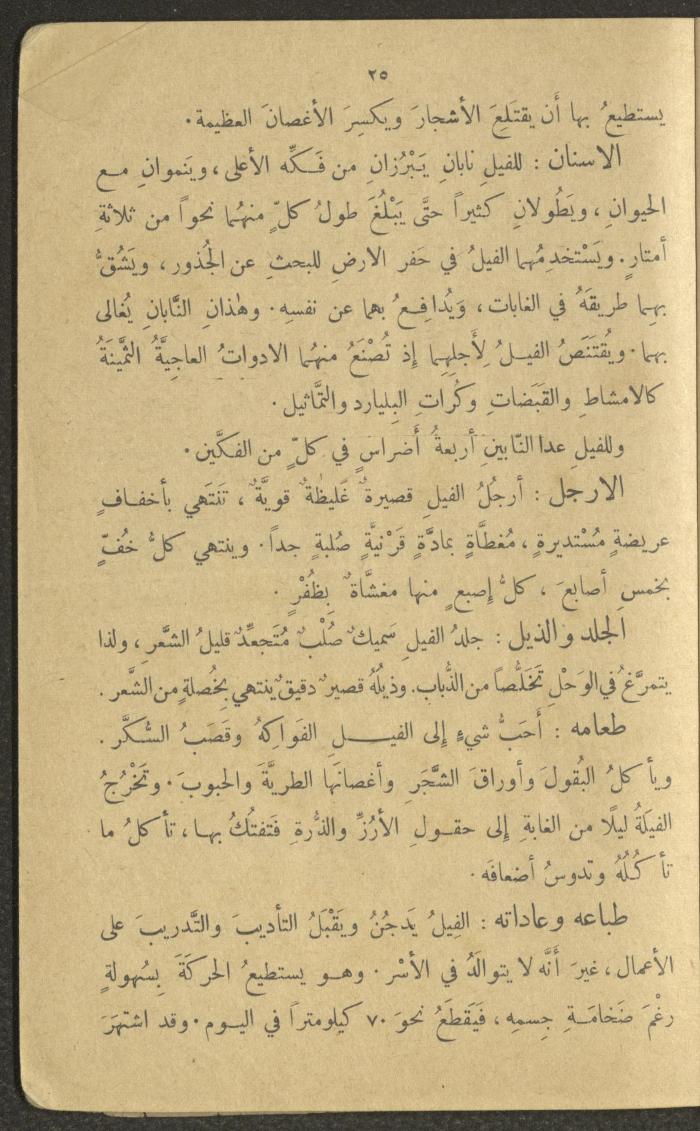 ٢٥
يستطيعُ بها أَن يقتَلِعَ الأشجارَ ويكسِرَ الأغصانَ العظيمة.
الاسنان : للفيلِ نابانِ يَبْرُزانِ من فَكِّه الأعلى ، ويَنموانِ مع
الحيوانِ ، ويَطُولانِ كثيراً حتَّى يَبْلُغَ طولُ كلٍّ منهُما نحواً من ثلاثةِ
أمتارٍ. ويَسْتخدِمُهما الفيلُ في حَفر الارضِ للبحثِ عن الجُذور ، ويَشُقُّ
بهِما طريقَهُ في الغابات ، وَيُدافِعُ بهما عن نفسِه. وهٰذانِ النَّابانِ يُغالى
بهما. ويُقتَنَصُ الفيلُ لِأَجلِهِما إِذ تُصْنَعُ منهُما الادواتُ العاجيَّةُ الثَّمينَةُ
كالامشاطِ والقَبَضاتِ وكُراتِ البِليارد والتَّماثيل.
وللفيلِ عدا النّابينِ أربعةُ أَضراسٍ في كلٍّ من الفكَّين.
الارجل : أرجلُ الفيلِ قصيرةٌ غَليظةٌ قويَّةٌ ، تَنتَهي بأخفافٍ
عريضةٍ مُسْتديرةٍ ، مُغطَّاةٍ بمادَّةٍ قَرْنيَّةٍ صُلبةٍ جداً. وينتهي كلُّ خُفٍّ
بخمسِ أصابعَ ، كلُّ إِصبعٍ منها مغشَّاةٌ بِظُفْرٍ.
الجلد والذيل : جلدُ الفيلِ سَميكٌ صُلْبٌ مُتَجعِّدٌ قليلُ الشَّعر ، ولذا
يتمرَّغُ في الوَحْلِ تَخَلُّصاً من الذُّباب. وذيلُهُ قصيرٌ دقيقٌ ينتهي بخُصلةٍ من الشَّعر.
طعامه : أَحَبُّ شيءٍ إِلى الفيلِ الفَواكِهُ وقَصَبُ السُّكَّر.
ويأكلُ البُقولَ وأوراقَ الشَّجَرِ وأغصانَها الطريَّةَ والحبوبَ. وتَخْرُجُ
الفيَلَةُ ليلًا من الغابةِ إِلى حقولِ الأرُزِّ والذُّرةِ فَتفتُكُ بها ، تأكلُ ما
تأكُلُهُ وتدوسُ أضعافَه.
طباعه وعاداته : الفِيلُ يَدجُنُ ويَقْبَلُ التأديبَ والتَّدريبَ على
الأعمال ، غيرَ أَنَّه لا يتوالَدُ في الأسْر. وهو يستطيعُ الحركَةَ بِسُهولةٍ
رغْمَ ضَخامَةِ جِسمِه ، فيَقطَعُ نحوَ ٧٠ كيلومتراً في اليوم. وقد اشتهَرَ